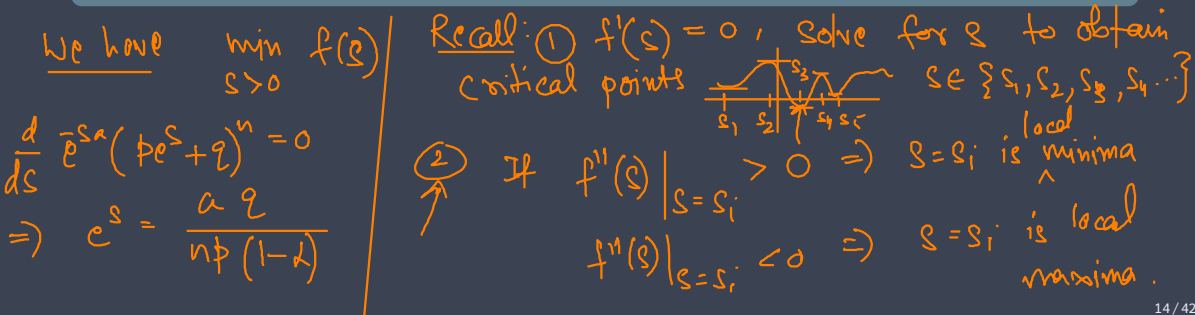 We have min f(s)
s>0
d/ds e^-sa (pe^s+q)^n = 0
=) e^s = aq / np(1-α)
Recall: ① f'(s) = 0, solve for s to obtain
critical points s∈ {s₁, s₂, s₃, s₄ ...}
s₁ s₂ s₃ s₄ s₅
② If f''(s)|s=sᵢ > 0 =) s=sᵢ is local minima
f''(s)|s=sᵢ <0 =) s=sᵢ is local
maxima.
14/42